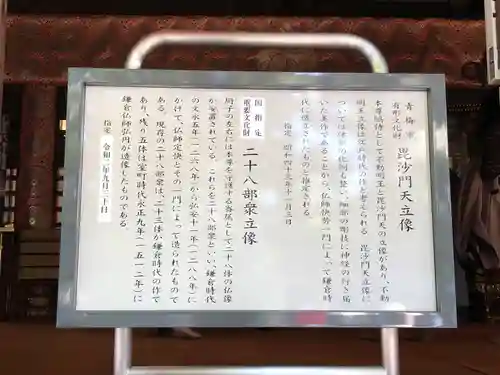 青梅市
有形文化財
毘沙門天立像
本尊脇侍として不動明王と毘沙門天の立像があり、不動
明王立像は江戸時代の作と考えられる。毘沙門天立像に
ついては
の比例も整い、細部の彫技に神経の行き届
いた美作であることから、仏師快勢一門によって鎌倉時
代に造立されたものと推定される。
指定 昭和四十三年十一月三日
国指定
重要文化財
二十八部衆立像
厨子の左右には本尊を守護する眷属として二十八体の仏像
が安置されている。これらを二十八部衆といい、鎌倉時代
の文永五年(一二六八年)から弘安十一年(一二八八年)に
かけて、仏師定快とその一門によって造られたもので
ある。現存の二十八部衆は、二十三体が鎌倉時代の作で
あり、残り五体は室町時代永正九年(一五一二年)に
鎌倉仏師弘円が造像したものである。
指定 令和二年九月三十日